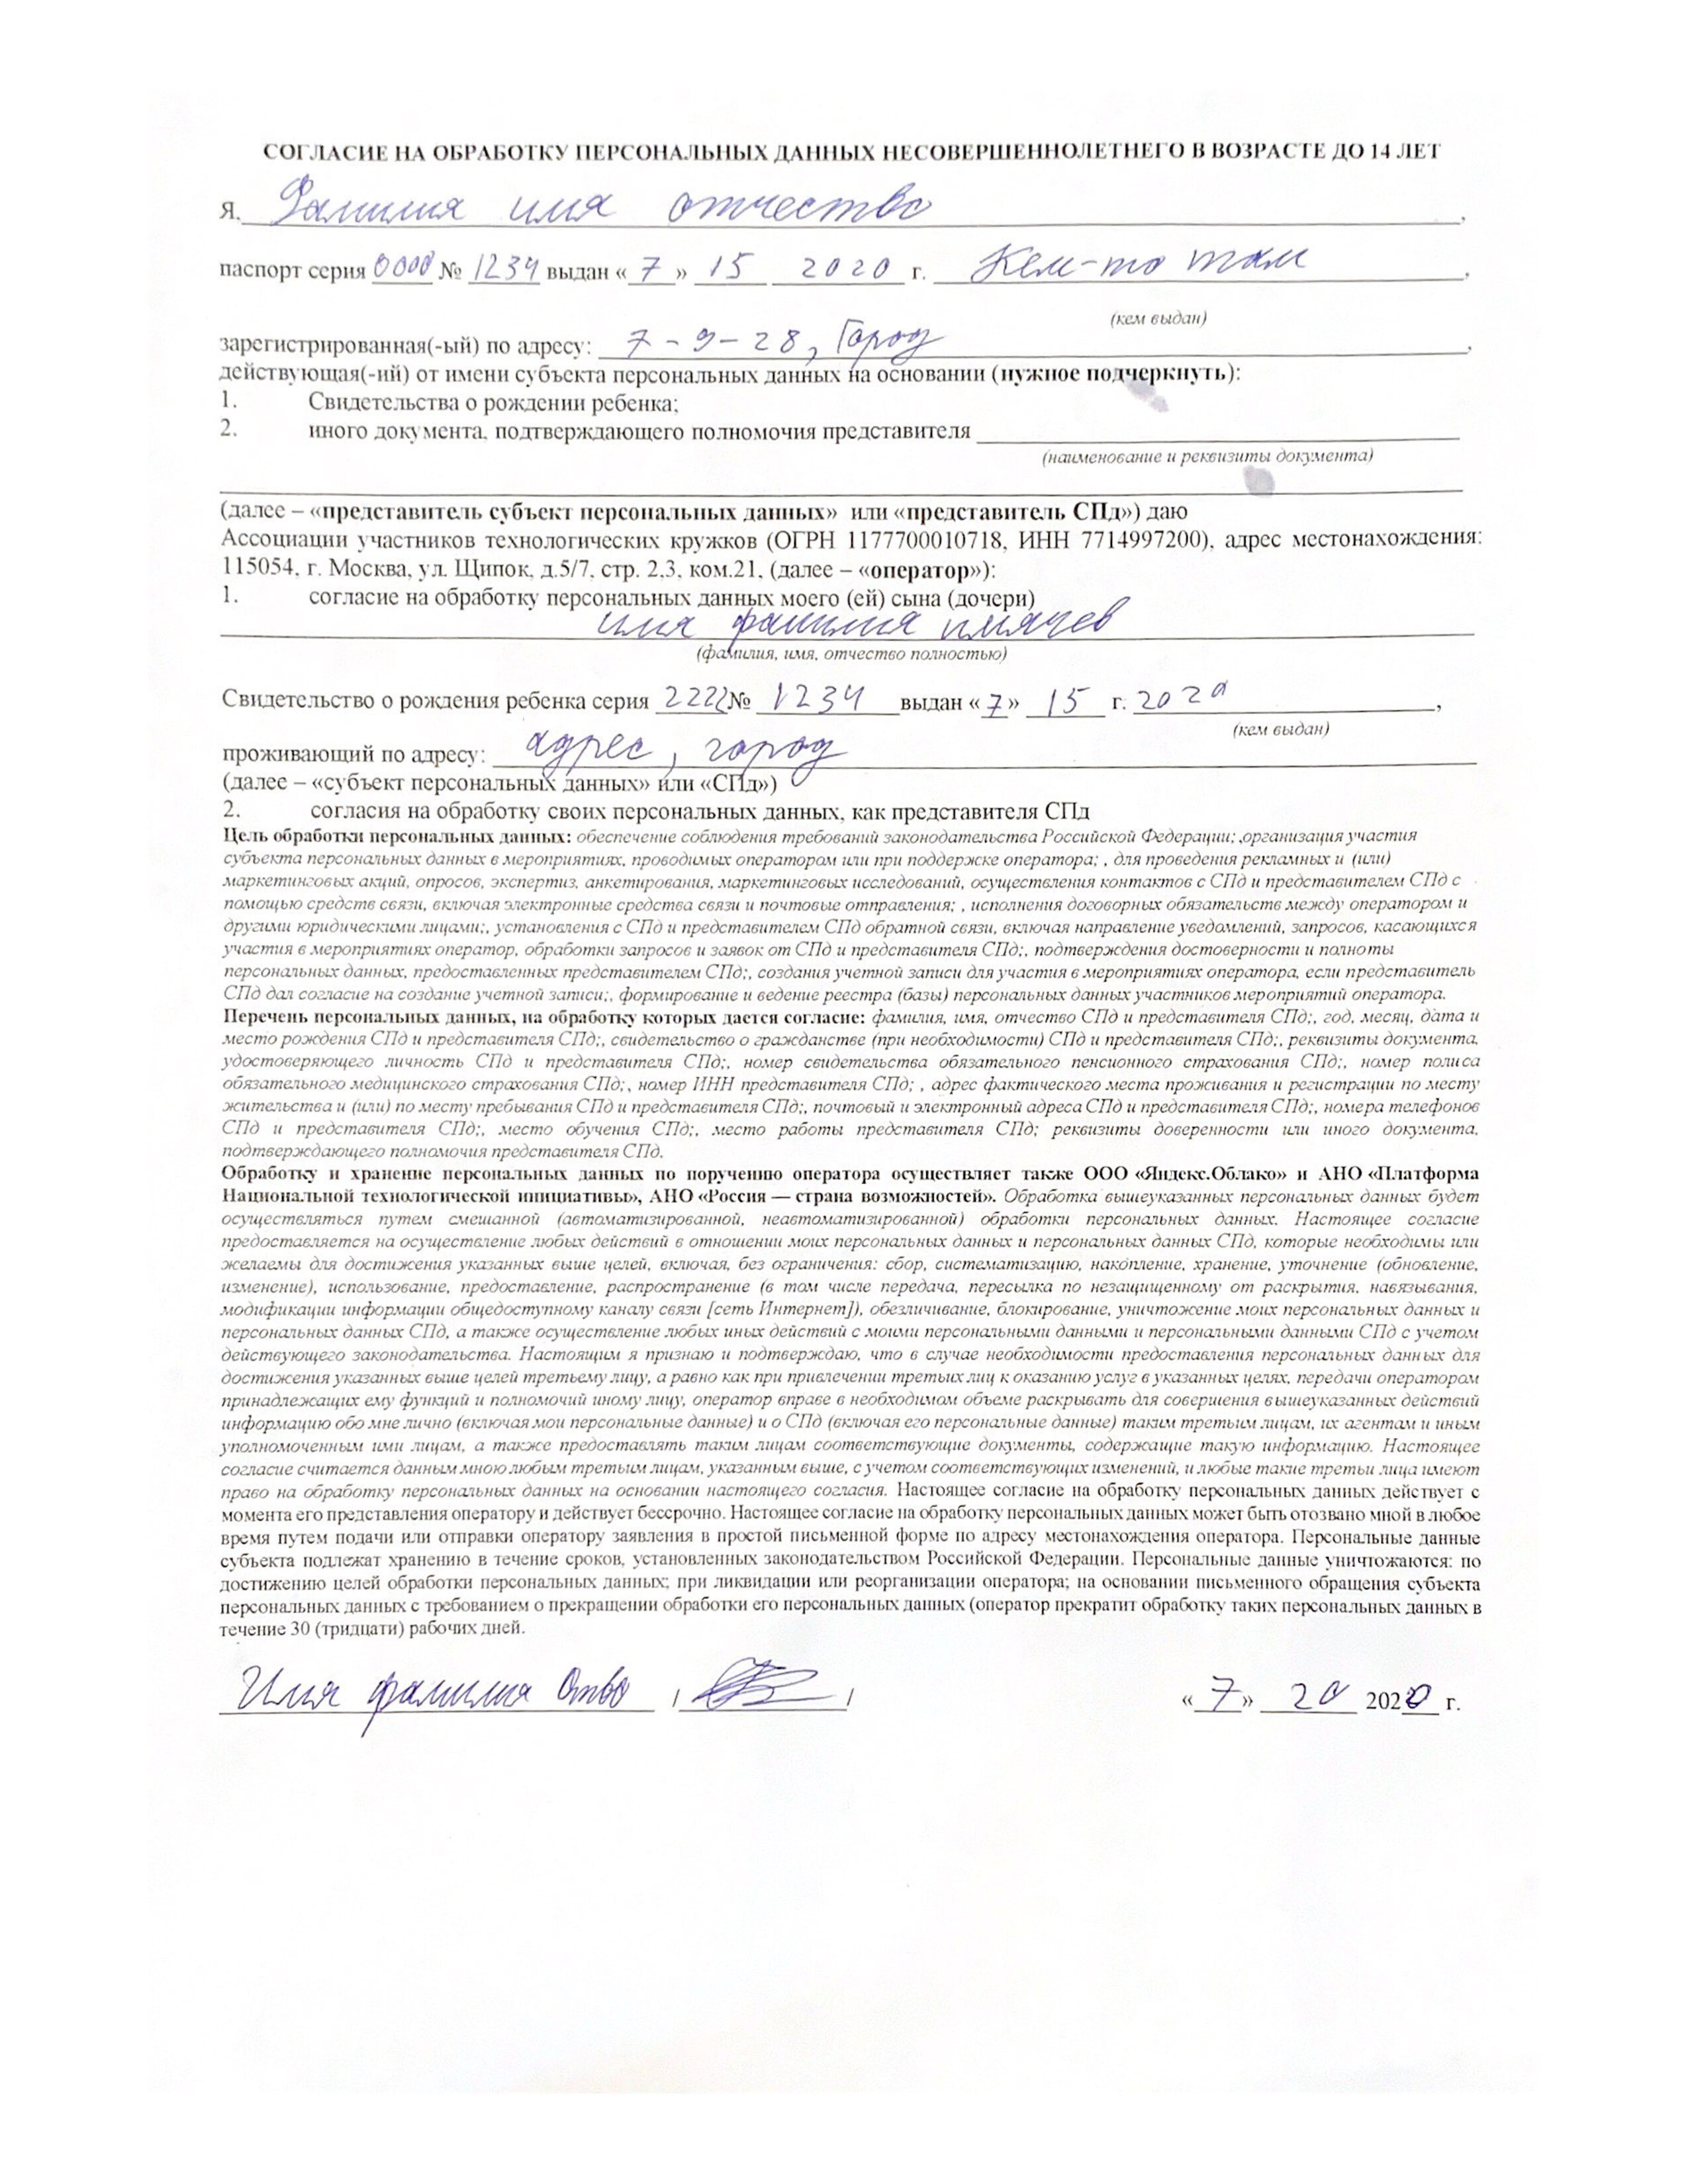 СОГЛАСИЕ НА ОБРАБОТКУ ПЕРСОНАЛЬНЫХ ДАННЫХ НЕСОВЕРШЕННОЛЕТНЕГО В ВОЗРАСТЕ ДО 14 ЛЕТ
Я, Фамилия имя отчество,
паспорт серия 0000 № 1234 выдан « 7 » 15 2020 г. Кем-то там,
(кем выдан)
зарегистрированная(-ый) по адресу: 7-9-28, Город,
действующая(-ий) от имени субъекта персональных данных на основании (нужное подчеркнуть):
1. Свидетельства о рождении ребенка;
2. иного документа, подтверждающего полномочия представителя
(наименование и реквизиты документа)
(далее – «представитель субъект персональных данных» или «представитель СПд») даю
Ассоциации участников технологических кружков (ОГРН 1177700010718, ИНН 7714997200), адрес местонахождения:
115054, г. Москва, ул. Щипок, д.5/7, стр. 2,3, ком.21, (далее – «оператор»):
1. согласие на обработку персональных данных моего (ей) сына (дочери)
имя фамилия имячев
(фамилия, имя, отчество полностью)
Свидетельство о рождения ребенка серия 2222 № 1234 выдан « 7 » 15 г. 2020,
(кем выдан)
проживающий по адресу: адрес, город
(далее – «субъект персональных данных» или «СПд»)
2. согласия на обработку своих персональных данных, как представителя СПд
Цель обработки персональных данных: обеспечение соблюдения требований законодательства Российской Федерации; ,организация участия
субъекта персональных данных в мероприятиях, проводимых оператором или при поддержке оператора; , для проведения рекламных и (или)
маркетинговых акций, опросов, экспертиз, анкетирования, маркетинговых исследований, осуществления контактов с СПд и представителем СПд с
помощью средств связи, включая электронные средства связи и почтовые отправления; , исполнения договорных обязательств между оператором и
другими юридическими лицами;, установления с СПд и представителем СПд обратной связи, включая направление уведомлений, запросов, касающихся
участия в мероприятиях оператор, обработки запросов и заявок от СПд и представителя СПд;, подтверждения достоверности и полноты
персональных данных, предоставленных представителем СПд;, создания учетной записи для участия в мероприятиях оператора, если представитель
СПд дал согласие на создание учетной записи;, формирование и ведение реестра (базы) персональных данных участников мероприятий оператора.
Перечень персональных данных, на обработку которых дается согласие: фамилия, имя, отчество СПд и представителя СПд;, год, месяц, дата и
место рождения СПд и представителя СПд;, свидетельство о гражданстве (при необходимости) СПд и представителя СПд;, реквизиты документа,
удостоверяющего личность СПд и представителя СПд;, номер свидетельства обязательного пенсионного страхования СПд;, номер полиса
обязательного медицинского страхования СПд;, номер ИНН представителя СПд; , адрес фактического места проживания и регистрации по месту
жительства и (или) по месту пребывания СПд и представителя СПд;, почтовый и электронный адреса СПд и представителя СПд;, номера телефонов
СПд и представителя СПд;, место обучения СПд;, место работы представителя СПд; реквизиты доверенности или иного документа,
подтверждающего полномочия представителя СПд.
Обработку и хранение персональных данных по поручению оператора осуществляет также ООО «Яндекс.Облако» и АНО «Платформа
Национальной технологической инициативы», АНО «Россия — страна возможностей». Обработка вышеуказанных персональных данных будет
осуществляться путем смешанной (автоматизированной, неавтоматизированной) обработки персональных данных. Настоящее согласие
предоставляется на осуществление любых действий в отношении моих персональных данных и персональных данных СПд, которые необходимы или
желаемы для достижения указанных выше целей, включая, без ограничения: сбор, систематизацию, накопление, хранение, уточнение (обновление,
изменение), использование, предоставление, распространение (в том числе передача, пересылка по незащищенному от раскрытия, навязывания,
модификации информации общедоступному каналу связи [сеть Интернет]), обезличивание, блокирование, уничтожение моих персональных данных и
персональных данных СПд, а также осуществление любых иных действий с моими персональными данными и персональными данными СПд с учетом
действующего законодательства. Настоящим я признаю и подтверждаю, что в случае необходимости предоставления персональных данных для
достижения указанных выше целей третьему лицу, а равно как при привлечении третьих лиц к оказанию услуг в указанных целях, передачи оператором
принадлежащих ему функций и полномочий иному лицу, оператор вправе в необходимом объеме раскрывать для совершения вышеуказанных действий
информацию обо мне лично (включая мои персональные данные) и о СПд (включая его персональные данные) таким третьим лицам, их агентам и иным
уполномоченным ими лицам, а также предоставлять таким лицам соответствующие документы, содержащие такую информацию. Настоящее
согласие считается данным мною любым третьим лицам, указанным выше, с учетом соответствующих изменений, и любые такие третьи лица имеют
право на обработку персональных данных на основании настоящего согласия. Настоящее согласие на обработку персональных данных действует с
момента его представления оператору и действует бессрочно. Настоящее согласие на обработку персональных данных может быть отозвано мной в любое
время путем подачи или отправки оператору заявления в простой письменной форме по адресу местонахождения оператора. Персональные данные
субъекта подлежат хранению в течение сроков, установленных законодательством Российской Федерации. Персональные данные уничтожаются: по
достижению целей обработки персональных данных; при ликвидации или реорганизации оператора; на основании письменного обращения субъекта
персональных данных с требованием о прекращении обработки его персональных данных (оператор прекратит обработку таких персональных данных в
течение 30 (тридцати) рабочих дней.
Имя фамилия Отво / / « 7 » 20 2020 г.